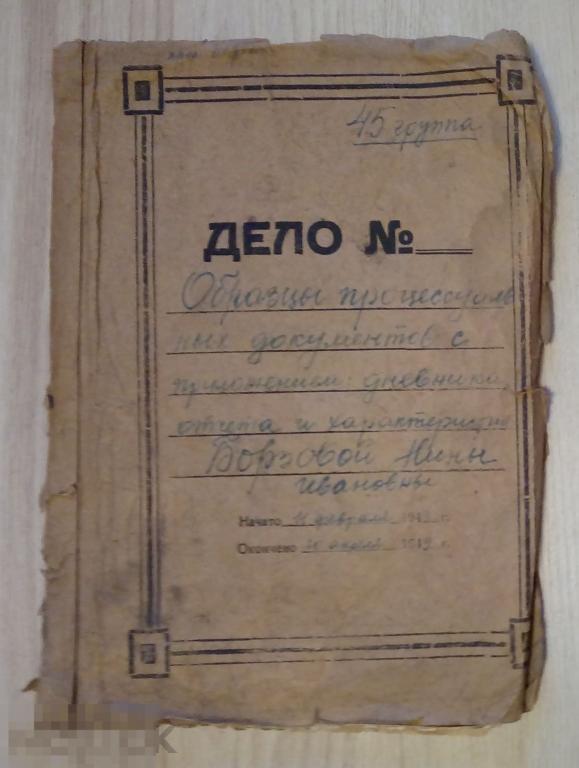 45 группа
ДЕЛО №
Образцы процессуаль
ных документов с
приложением: дневника,
отчета и характеристики
Борзовой Нины
Ивановны
Начато 11 февраля 1949 г.
Окончено апреля 1949 г.